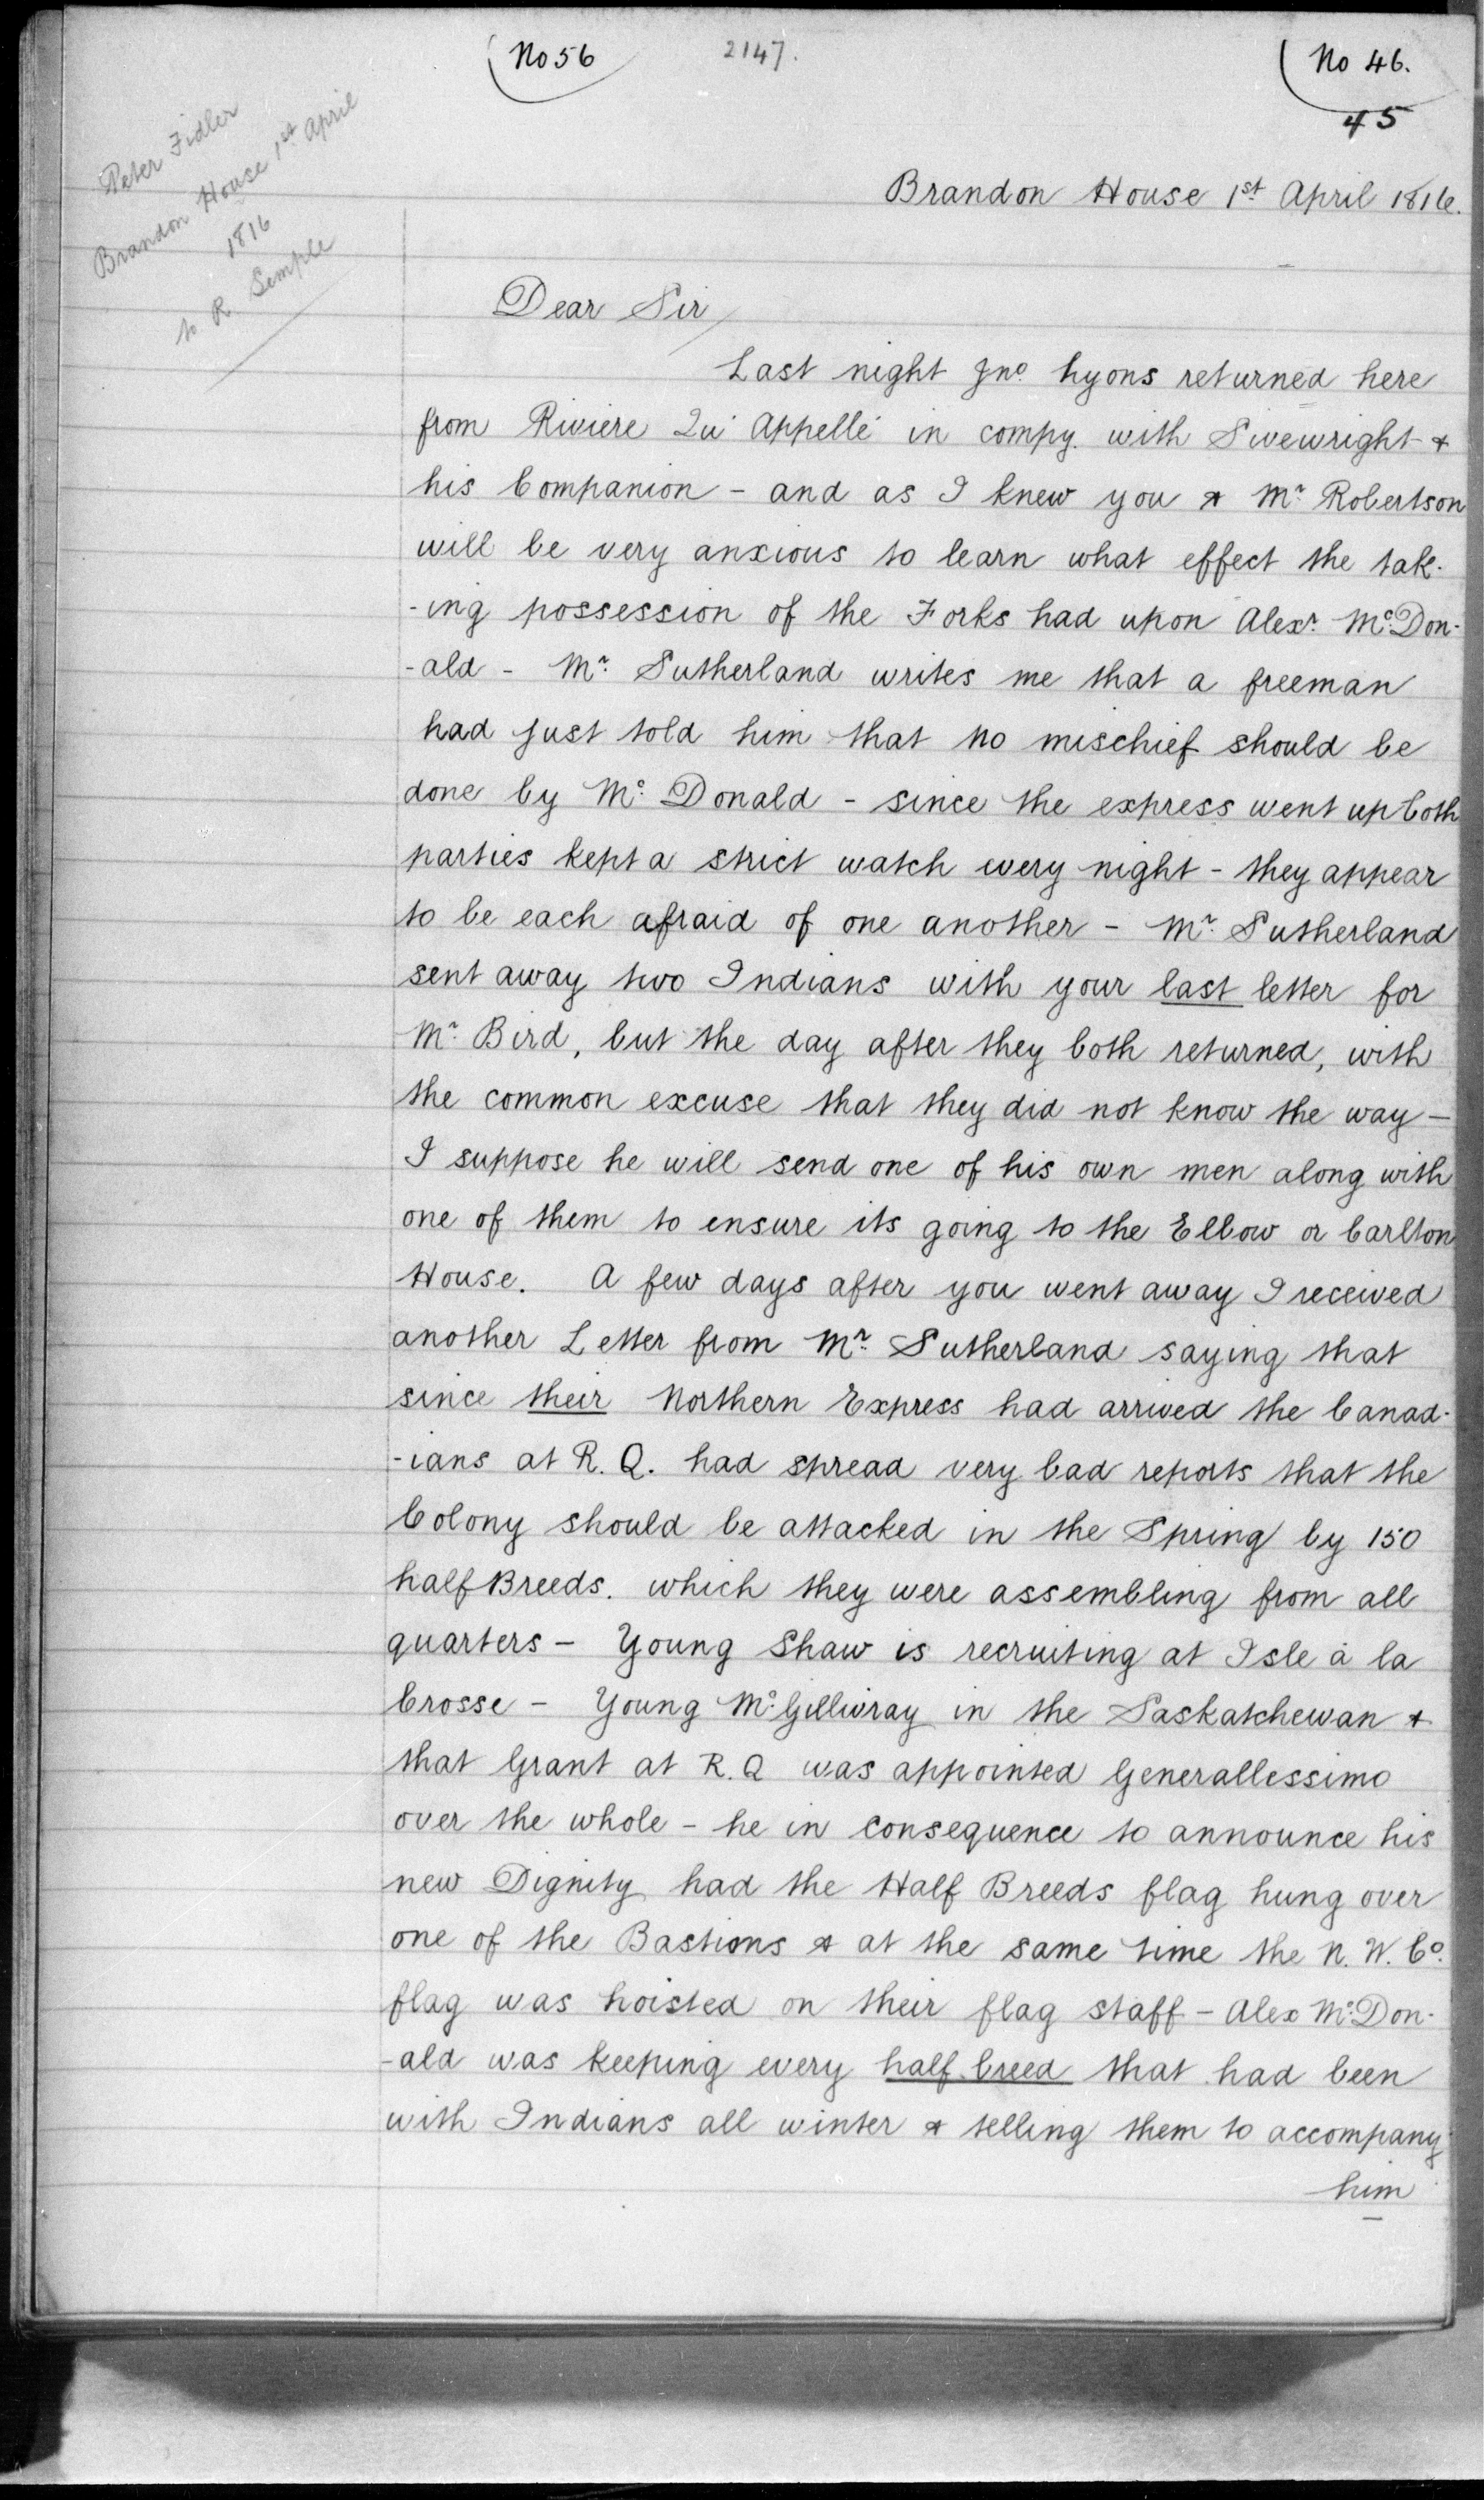 No 56
2147.
No 46.
45
Peter Fidler
Brandon House 1st April
1816
to R. Semple
Brandon House 1st April 1816.
Dear Sir
Last night Jno. Lyons returned here
from Riviere Qu' Appellé in compy. with Sivewright &
his Companion - and as I knew you & Mr. Robertson
will be very anxious to learn what effect the tak-
-ing possession of the Forks had upon Alexr. Mc.Don-
-ald - Mr. Sutherland writes me that a freeman
had just told him that no mischief should be
done by Mc. Donald - since the express went up both
parties kept a strict watch every night - they appear
to be each afraid of one another - Mr. Sutherland
sent away two Indians with your last letter for
Mr. Bird, but the day after they both returned, with
the common excuse that they did not know the way -
I suppose he will send one of his own men along with
one of them to ensure its going to the Elbow or Carlton
House. A few days after you went away I received
another Letter from Mr. Sutherland saying that
since their Northern Express had arrived the Canad-
-ians at R. Q. had spread very bad reports that the
Colony should be attacked in the Spring by 150
half Breeds. which they were assembling from all
quarters - Young Shaw is recruiting at Isle à la
Crosse - Young Mc.Gillivray in the Saskatchewan &
that Grant at R. Q was appointed Generallessimo
over the whole - he in consequence to announce his
new Dignity had the Half Breeds flag hung over
one of the Bastions & at the same time the N. W. Co.
flag was hoisted on their flag staff - Alex Mc.Don-
-ald was keeping every half breed that had been
with Indians all winter & telling them to accompany
him